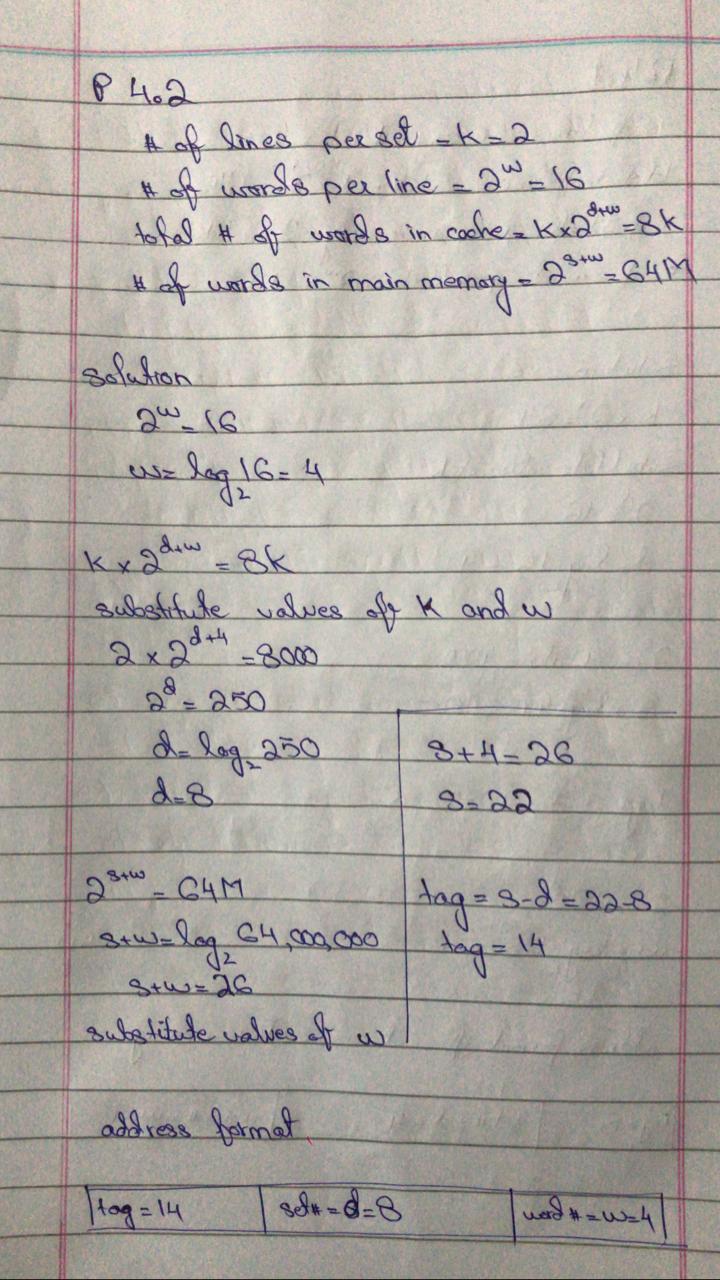 P 4.2
# of lines per set = k = 2
# of words per line = 2^w = 16
total # of words in cache = k x 2^d+w = 8k
# of words in main memory = 2^s+w = 64M
solution
2^w = 16
w = log₂ 16 = 4
k x 2^d+w = 8k
substitute values of k and w
2 x 2^d+4 = 8000
2^d = 250
d = log₂ 250
d = 8
2^s+w = 64M
s+w = log₂ 64,000,000
s+w = 26
substitute values of w
s + 4 = 26
s = 22
tag = s-d = 22-8
tag = 14
address format
tag = 14 | set# = d = 8 | word # = w = 4